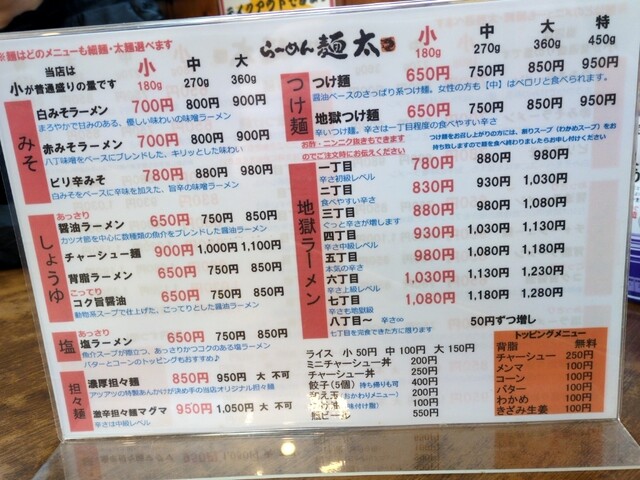 ※麺はどのメニューも細麺・太麺選べます
らーめん 麺太
当店は
小が普通盛りの量です
小 180g 中 270g 大 360g
みそ
白みそラーメン 700円 800円 900円
まろやかで甘みのある、優しい味わいの味噌ラーメン
赤みそラーメン 700円 800円 900円
八丁味噌をベースにブレンドした、キリッとした味わい
ピリ辛みそ 780円 880円 980円
白みそベースに辛味を加えた、旨辛の味噌ラーメン
しょうゆ
あっさり
醤油ラーメン 650円 750円 850円
カツオ節を中心に数種類の魚介をブレンドした醤油ラーメン
チャーシュー麺 900円 1,000円 1,100円
背脂ラーメン 650円 750円 850円
こってり
コク旨醤油 650円 750円 850円
動物系スープで仕上げた、こってりとした醤油ラーメン
塩
あっさり
塩ラーメン 650円 750円 850円
魚介スープが際立つ、あっさりかつコクのある塩ラーメン
バターとコーンのトッピングもおすすめ♪
担々麺
濃厚担々麺 850円 950円 大 不可
アツアツの特製あんかけが決め手の当店オリジナル担々麺
激辛担々麺マグマ 950円 1,050円 大 不可
辛さは中級レベル
小 180g 中 270g 大 360g 特 450g
つけ麺
つけ麺 650円 750円 850円 950円
醤油ベースのさっぱり系つけ麺。女性の方も【中】はペロリと食べられます。
地獄つけ麺 650円 750円 850円 950円
辛いつけ麺。辛さは一丁目程度の食べやすい辛さ
お酢・ニンニク抜きもできます
のでご注文時にお伝えください
つけ麺をお召し上がりの方には、割りスープ（わかめスープ）をお
持ち致しますので麺を食べ終わりましたらお申し付けください
地獄ラーメン
一丁目 780円 880円 980円
辛さ初級レベル
二丁目 830円 930円 1,030円
食べやすい辛さ
三丁目 880円 980円 1,080円
ぐっと辛さが増します
四丁目 930円 1,030円 1,130円
辛さ中級レベル
五丁目 980円 1,080円 1,180円
本気の辛さ
六丁目 1,030円 1,130円 1,230円
辛さ上級レベル
七丁目 1,080円 1,180円 1,280円
辛さも地獄級
八丁目～ 辛さ∞ 50円ずつ増し
七丁目を完食できた方に限ります
ライス 小50円 中100円 大150円
ミニチャーシュー丼 200円
チャーシュー丼 400円
餃子（5個）持ち帰りも可 250円
和え玉（おかわりメニュー） 200円
100円
瓶ビール 550円
トッピングメニュー
背脂 無料
チャーシュー 250円
メンマ 100円
コーン 100円
バター 100円
わかめ 100円
きざみ生姜 100円